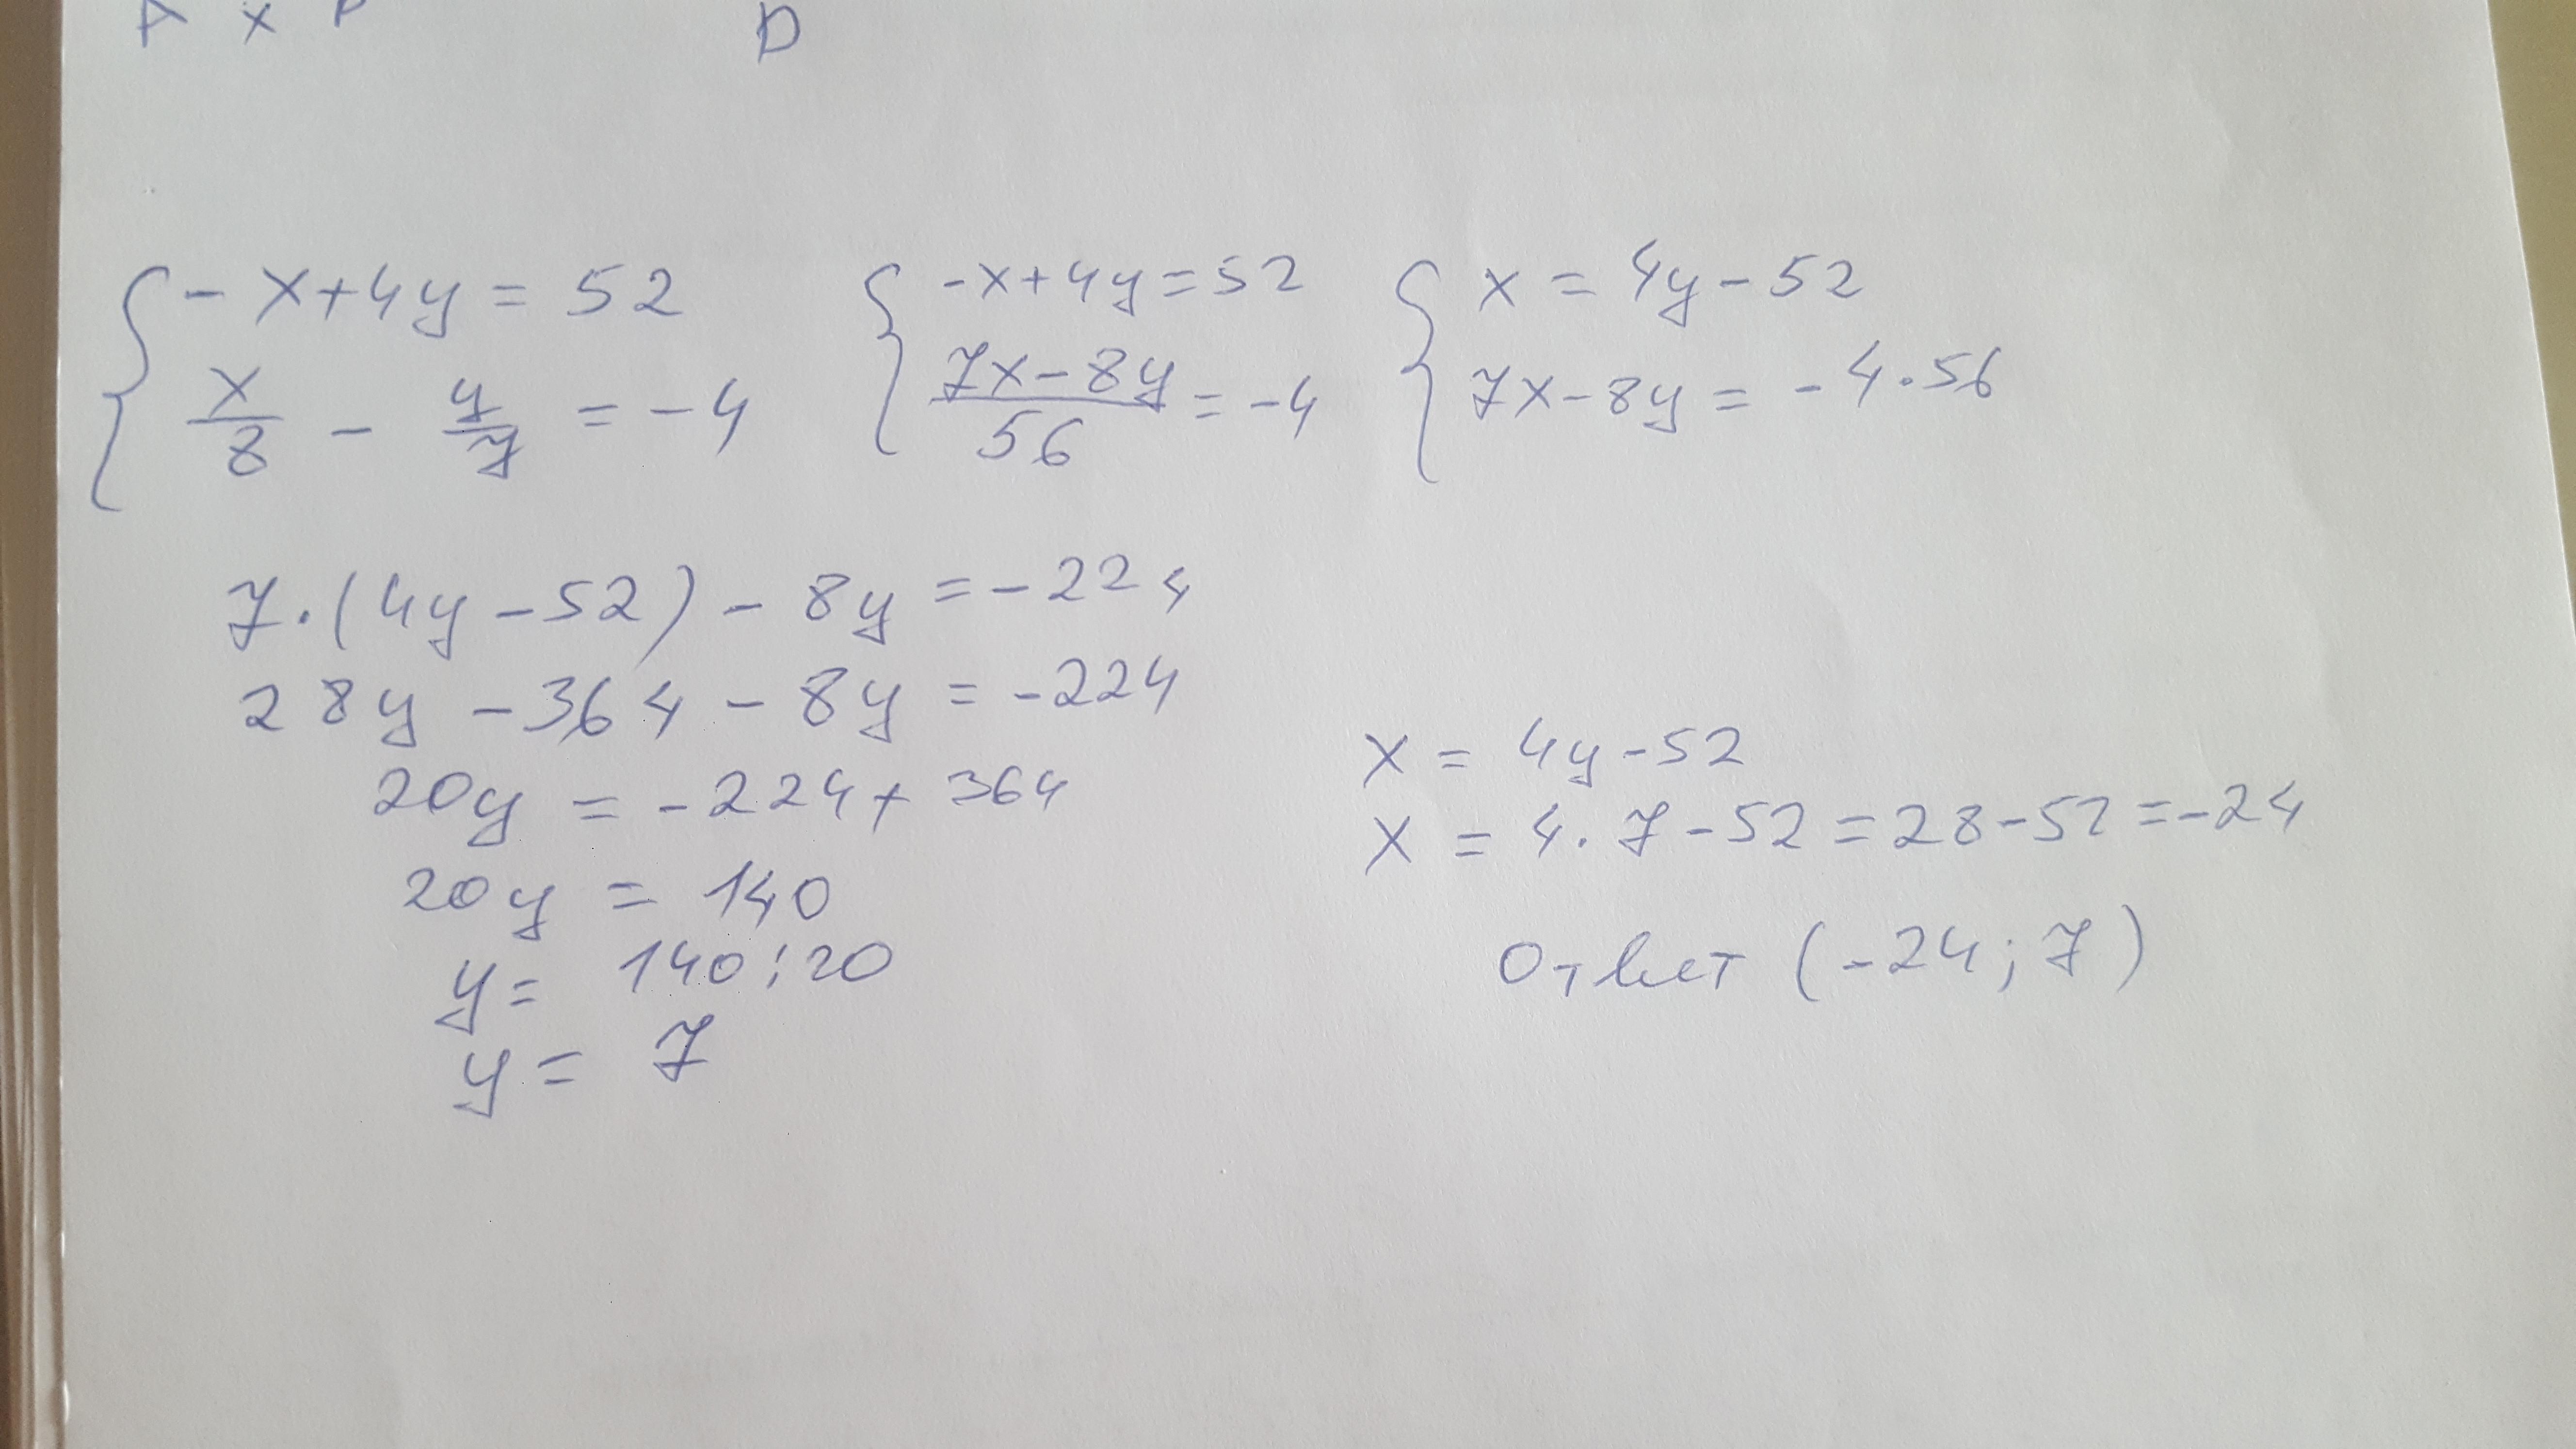 D
{ -x+4y=52
x/8 - y/7 = -4
{ -x+4y=52
7x-8y/56 = -4
{ x = 4y-52
7x-8y = -4·56
7·(4y-52)-8y=-224
28y-364-8y=-224
20y=-224+364
20y=140
y=140:20
y=7
x=4y-52
x=4·7-52=28-52=-24
Ответ (-24; 7)